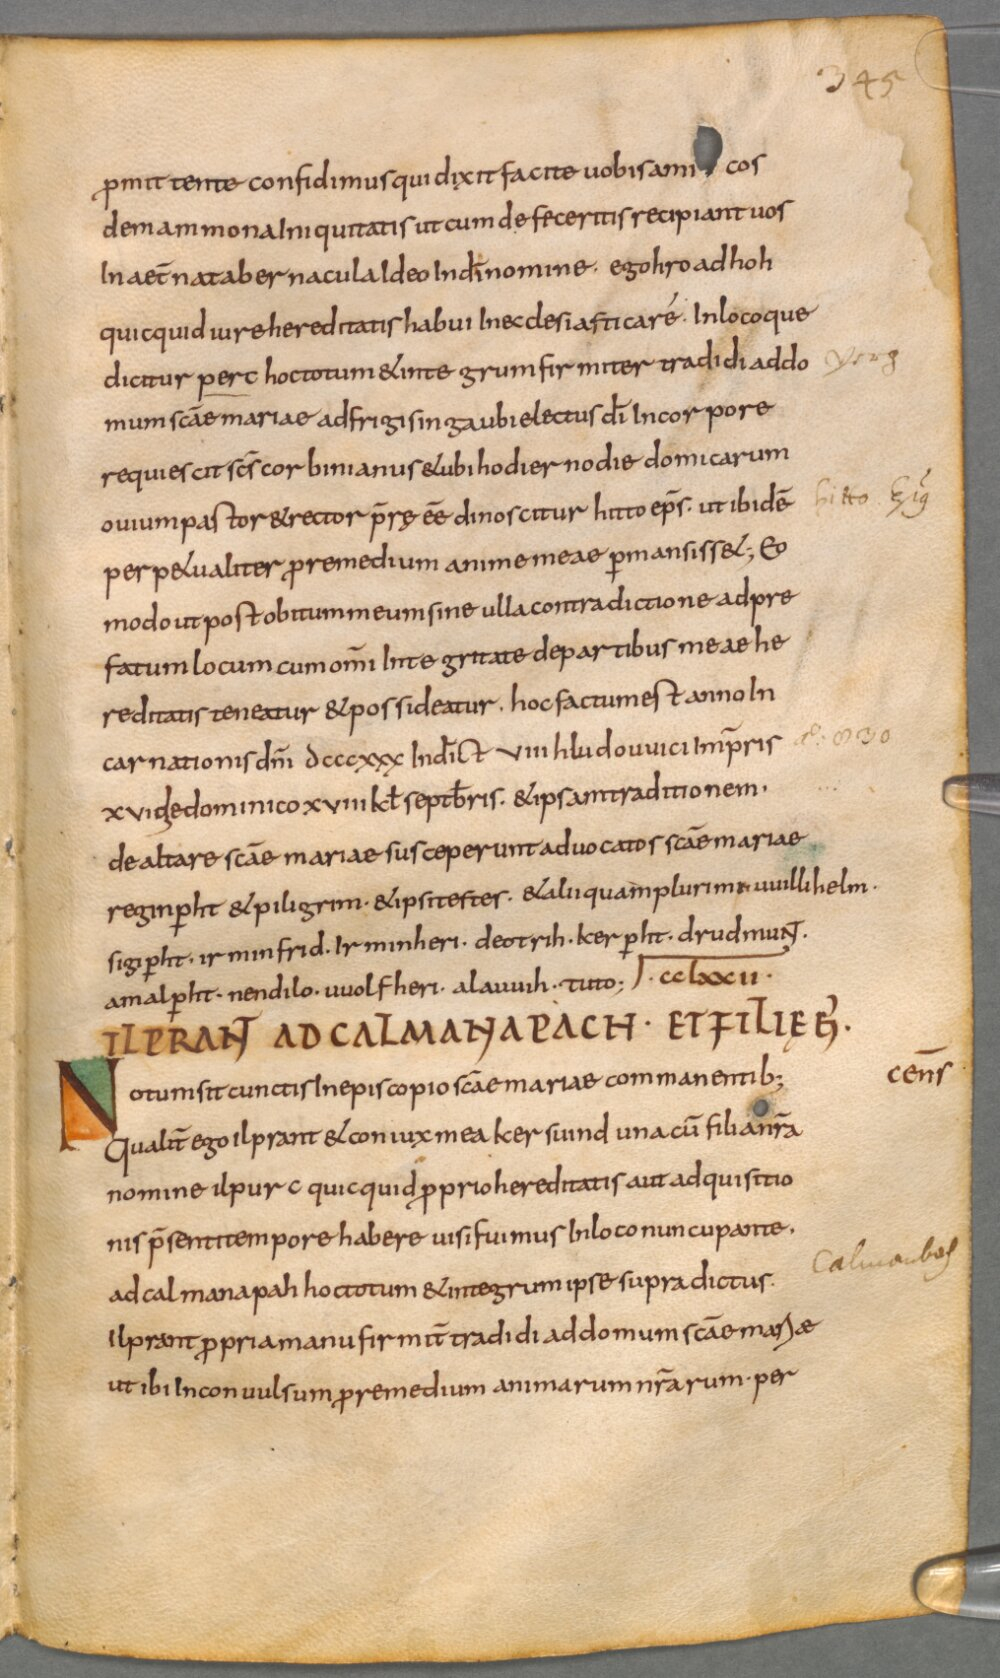 345
ꝓmittente confidimus qui dixit facite uobis ami cos
de mammona Iniquitatis ut cum defeceritis recipiant uos
In aet̄na tabernacula Ideo In dī nomine. ego hroadhoh
quicquid iure hereditatis habui In ecclesiasticare. In loco que
dicitur perc hoc totum & integrum firmiter tradidi ad do
yerg
mum sc̄ae mariae ad frigisinga ubi electus dī In corpore
requiescit sc̄s corbinianus & ubi hodierno die domicarum
ouium pastor & rector p̄rę ēe dinoscitur hitto ep̄s. ut ibidē
hitto
perp&ualiter ꝓ remedium anime meae ꝑmansiss&; Eo
modo ut post obitum meum sine ulla contradictione ad pre
fatum locum cum om̄i Integritate de partibus meae he
reditatis teneatur & possideatur. hoc factum est anno In
carnationis dn̄i dcccxxx Indict̄ viii hludouuici Imp̄ris
aº: 830
xvii die dominico xviii kl septb̄ris. & ipsam traditionem.
de altare sc̄ae mariae susceperunt aduocatos sc̄ae mariae
reginꝑht & piligrim. & ipsi testes. & alii quam plurimi uuillihelm.
sigiꝑht. irminfrid. Irminheri. deotrih. kerꝑht. drudmunt.
amalꝑht. nendilo. uuolfheri. alauuih. tuto; .cclxxii.
ILPRANT AD CALMANAPACH. ET FILIĘ EI.
Notum sit cunctis In episcopio sc̄ae mariae commanentib;
cens̄
Qualit̄ ego ilprant & coniux mea kersuind una cū filia nr̄a
nomine ilpurc quicquid ꝓprio hereditatis aut adquisitio
nis p̄senti tempore habere uisi fuimus In loco nuncupante.
Calmanbach
ad calmanapah hoc totum & integrum ipse supradictus.
Ilprant ꝓpria manu firmit̄ tradidi ad domum sc̄ae mariæ
ut ibi Inconuulsum ꝓ remedium animarum nr̄arum. per